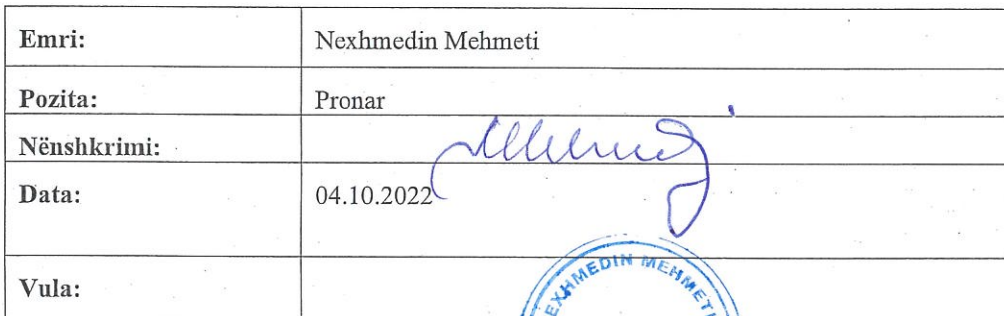 Emri: Nexhmedin Mehmeti
Pozita: Pronar
Nënshkrimi:
Data: 04.10.2022
Vula:
NEXHMEDIN MEHMETI